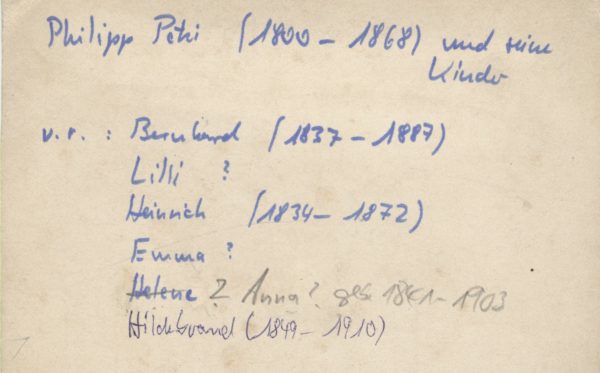 Philipp Petri (1800 – 1868) und seine
Kinder
v.r. : Bernhard (1837 – 1887)
Lilli ?
Heinrich (1834 – 1872)
Emma ?
Helene ? Anna? geb. 1841 – 1903
Hildebrand (1849 – 1910)